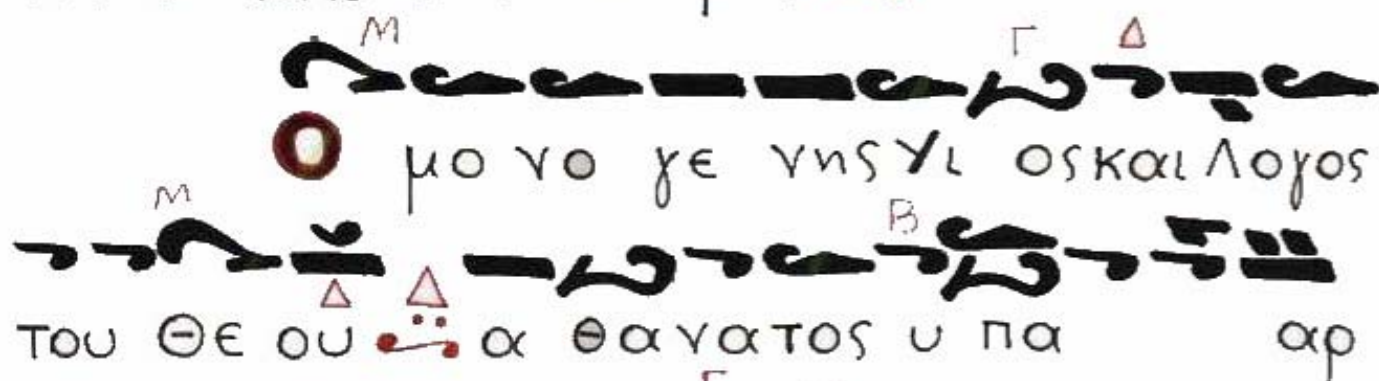 Μ Γ Δ
Ο μο νο γε νης Υι ος και Λογος
Μ Β
Δ Δ
του Θε ου α θανατος υ πα αρ